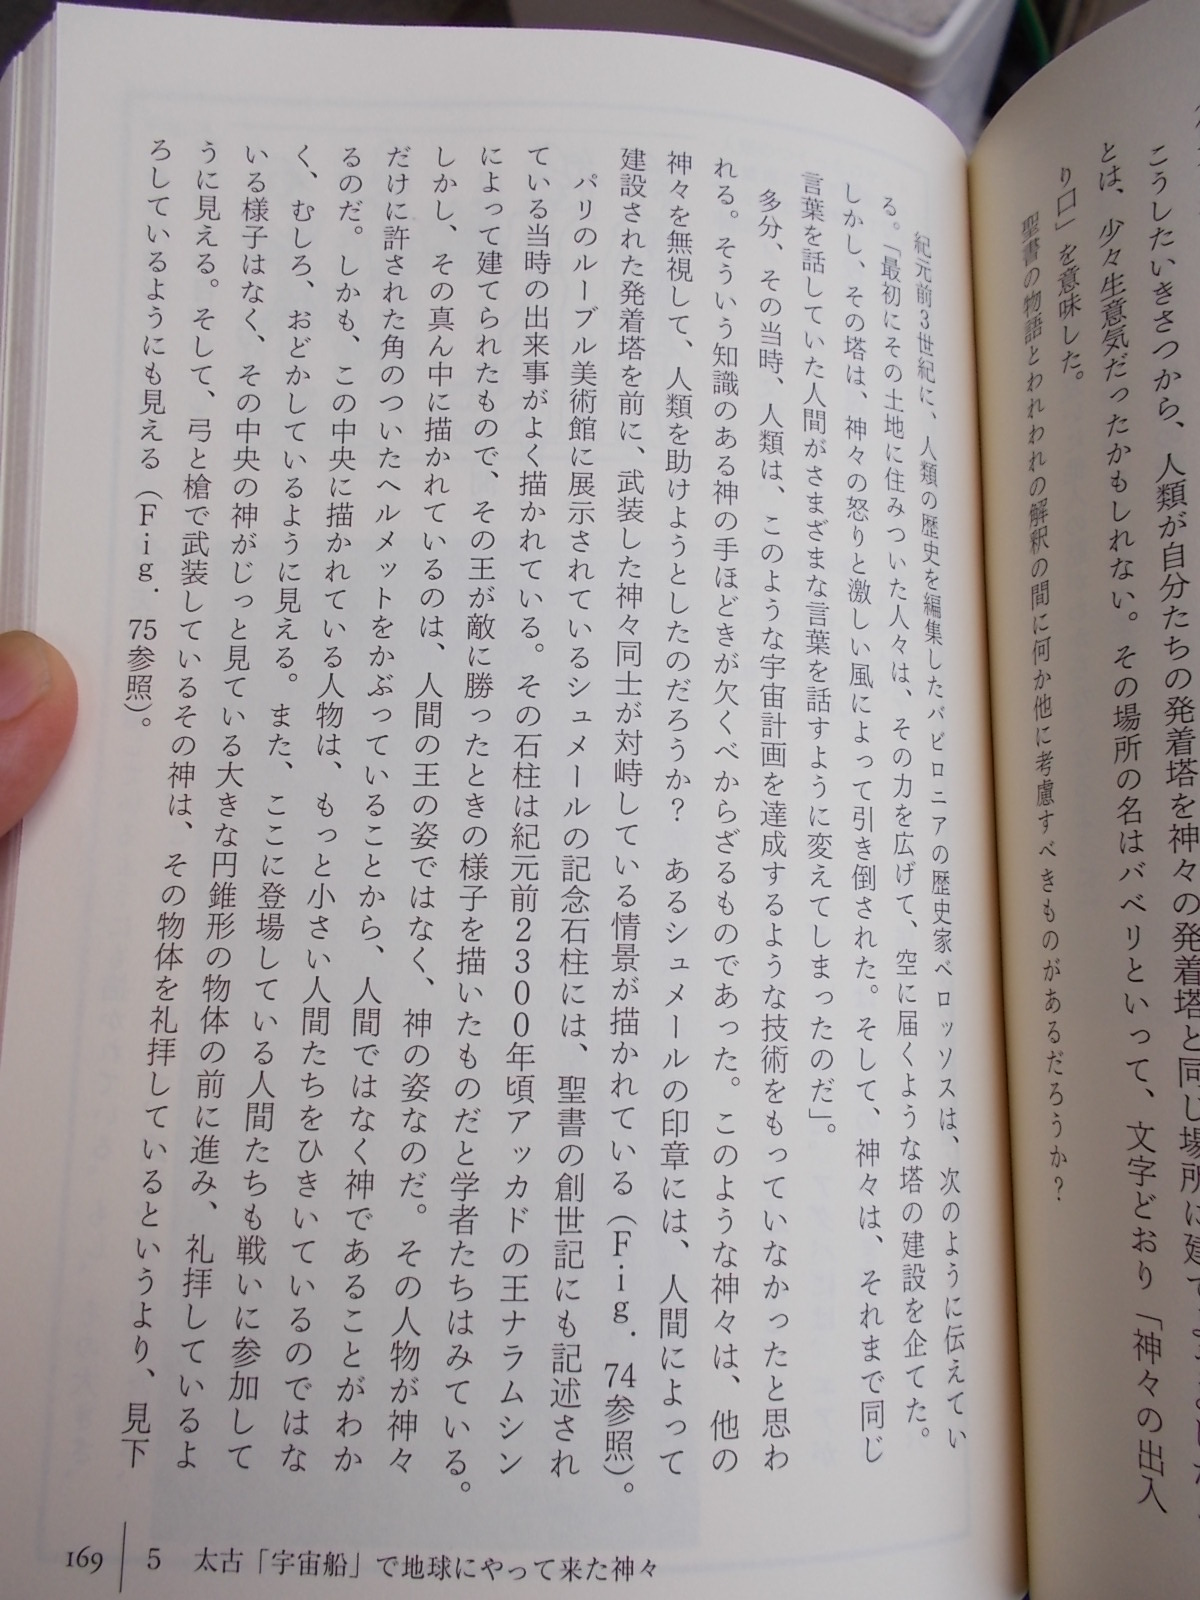 こうしたいきさつから、人類が自分たちの発着塔を神々の発着塔と同じ場所に建て
とは、少々生意気だったかもしれない。その場所の名はバベリといって、文字どおり「神々の出入
り口」を意味した。
聖書の物語とわれわれの解釈の間に何か他に考慮すべきものがあるだろうか?
紀元前3世紀に、人類の歴史を編集したバビロニアの歴史家ベロッソスは、次のように伝えてい
る。「最初にその土地に住みついた人々は、その力を広げて、空に届くような塔の建設を企てた。
しかし、その塔は、神々の怒りと激しい風によって引き倒された。そして、神々は、それまで同じ
言葉を話していた人間がさまざまな言葉を話すように変えてしまったのだ」。
多分、その当時、人類は、このような宇宙計画を達成するような技術をもっていなかったと思わ
れる。そういう知識のある神の手ほどきが欠くべからざるものであった。このような神々は、他の
神々を無視して、人類を助けようとしたのだろうか? あるシュメールの印章には、人間によって
建設された発着塔を前に、武装した神々同士が対峙している情景が描かれている(Fig. 74参照)。
パリのルーブル美術館に展示されているシュメールの記念石柱には、聖書の創世記にも記述され
ている当時の出来事がよく描かれている。その石柱は紀元前2300年頃アッカドの王ナラムシン
によって建てられたもので、その王が敵に勝ったときの様子を描いたものだと学者たちはみている。
しかし、その真ん中に描かれているのは、人間の王の姿ではなく、神の姿なのだ。その人物が神々
だけに許された角のついたヘルメットをかぶっていることから、人間ではなく神であることがわか
るのだ。しかも、この中央に描かれている人物は、もっと小さい人間たちをひきいているのではな
く、むしろ、おどかしているように見える。また、ここに登場している人間たちも戦いに参加して
いる様子はなく、その中央の神がじっと見ている大きな円錐形の物体の前に進み、礼拝しているよ
うに見える。そして、弓と槍で武装しているその神は、その物体を礼拝しているというより、見下
ろしているようにも見える(Fig. 75参照)。
169 5 太古「宇宙船」で地球にやって来た神々